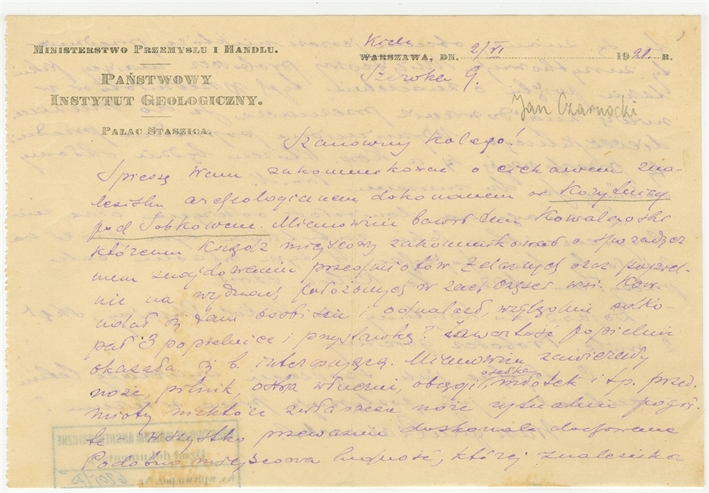 MINISTERSTWO PRZEMYSŁU I HANDLU.
PAŃSTWOWY
INSTYTUT GEOLOGICZNY.
PAŁAC STASZICA.
Kielce
WARSZAWA, DN. 2/VI 1921. R.
Szeroka 9.
Jan Czarnocki
Szanowny Kolego!
Spieszę Wam zakomunikować o ciekawem zna-
lezisku archeologicznem dokonanem w Korytnicy
pod Sobkowem. Mianowicie bawił tam Kowalczewski
któremu ksiądz miejscowy zakomunikował o
znajdowaniu przedmiotów żelaznych oraz popiel-
nic na wydmach położonych w zach. części wsi.
tam osobiście i odnalazł, względnie wyko-
pał 3 popielnice i przystawkę? Zawartość popielnic
okazała się b. interesującą. Mianowicie zawierały
noże, pilnik, włóczni, obcęgi, młotek i t.p. przed-
mioty niektóre zwłaszcza noże rytualnie pogię-
te wszystko przeważnie doskonale dochowane
Podobno miejscowa ludność, której znaleziska